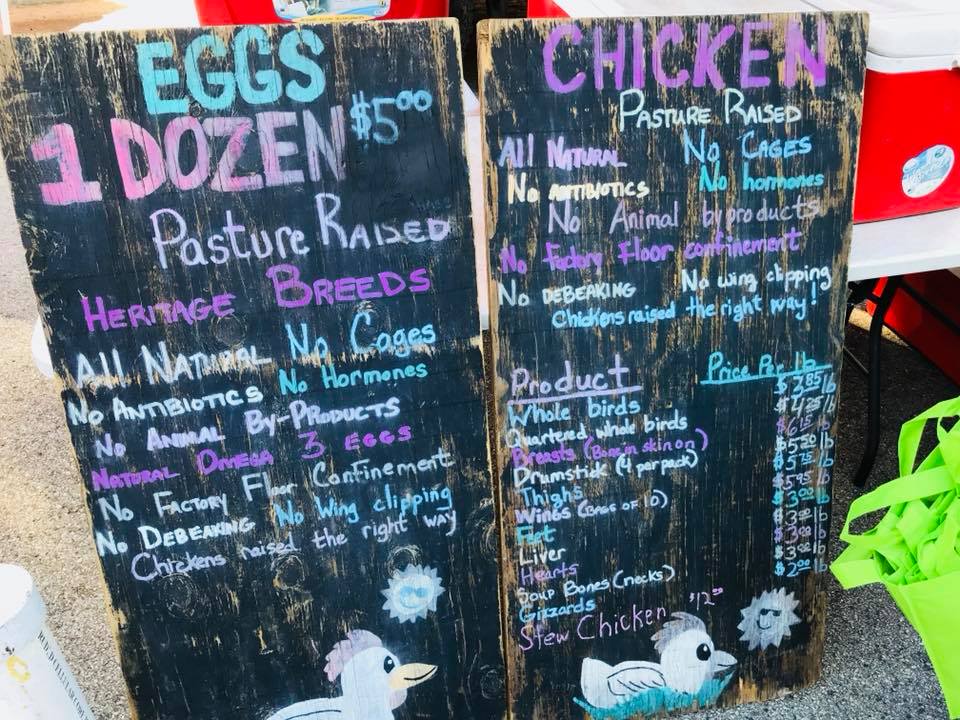 EGGS
1 DOZEN $5.00
Pasture RAISED
HERITAGE BREEDS
All NATURAL No Cages
No ANTIBIOTICS No HORMONES
No ANIMAL By-PRODUCTS
NATURAL OMEGA 3 EGGS
No FACTORY Floor Confinement
No DEBEAKING No Wing clipping
Chickens raised the right way
CHICKEN
PASTURE RAISED
All NATURAL No CAGES
No ANTIBIOTICS No hormones
No Animal byproducts
No Factory Floor confinement
No DEBEAKING No wing clipping
Chickens raised the right way!
Product Price Per lb
Whole birds $3.85 lb
Quartered whole birds lb
Breasts (Bone in skin on) $6.15 lb
Drumstick (4 per pack) $5.50 lb
Thighs $5.75 lb
Wings (BAGS OF 10) $5.95 lb
Feet $3.00 lb
Liver $3.00 lb
Hearts $3.00 lb
Soup Bones (necks) $3.00 lb
Gizzards $2.00 lb
Stew Chicken $12.00